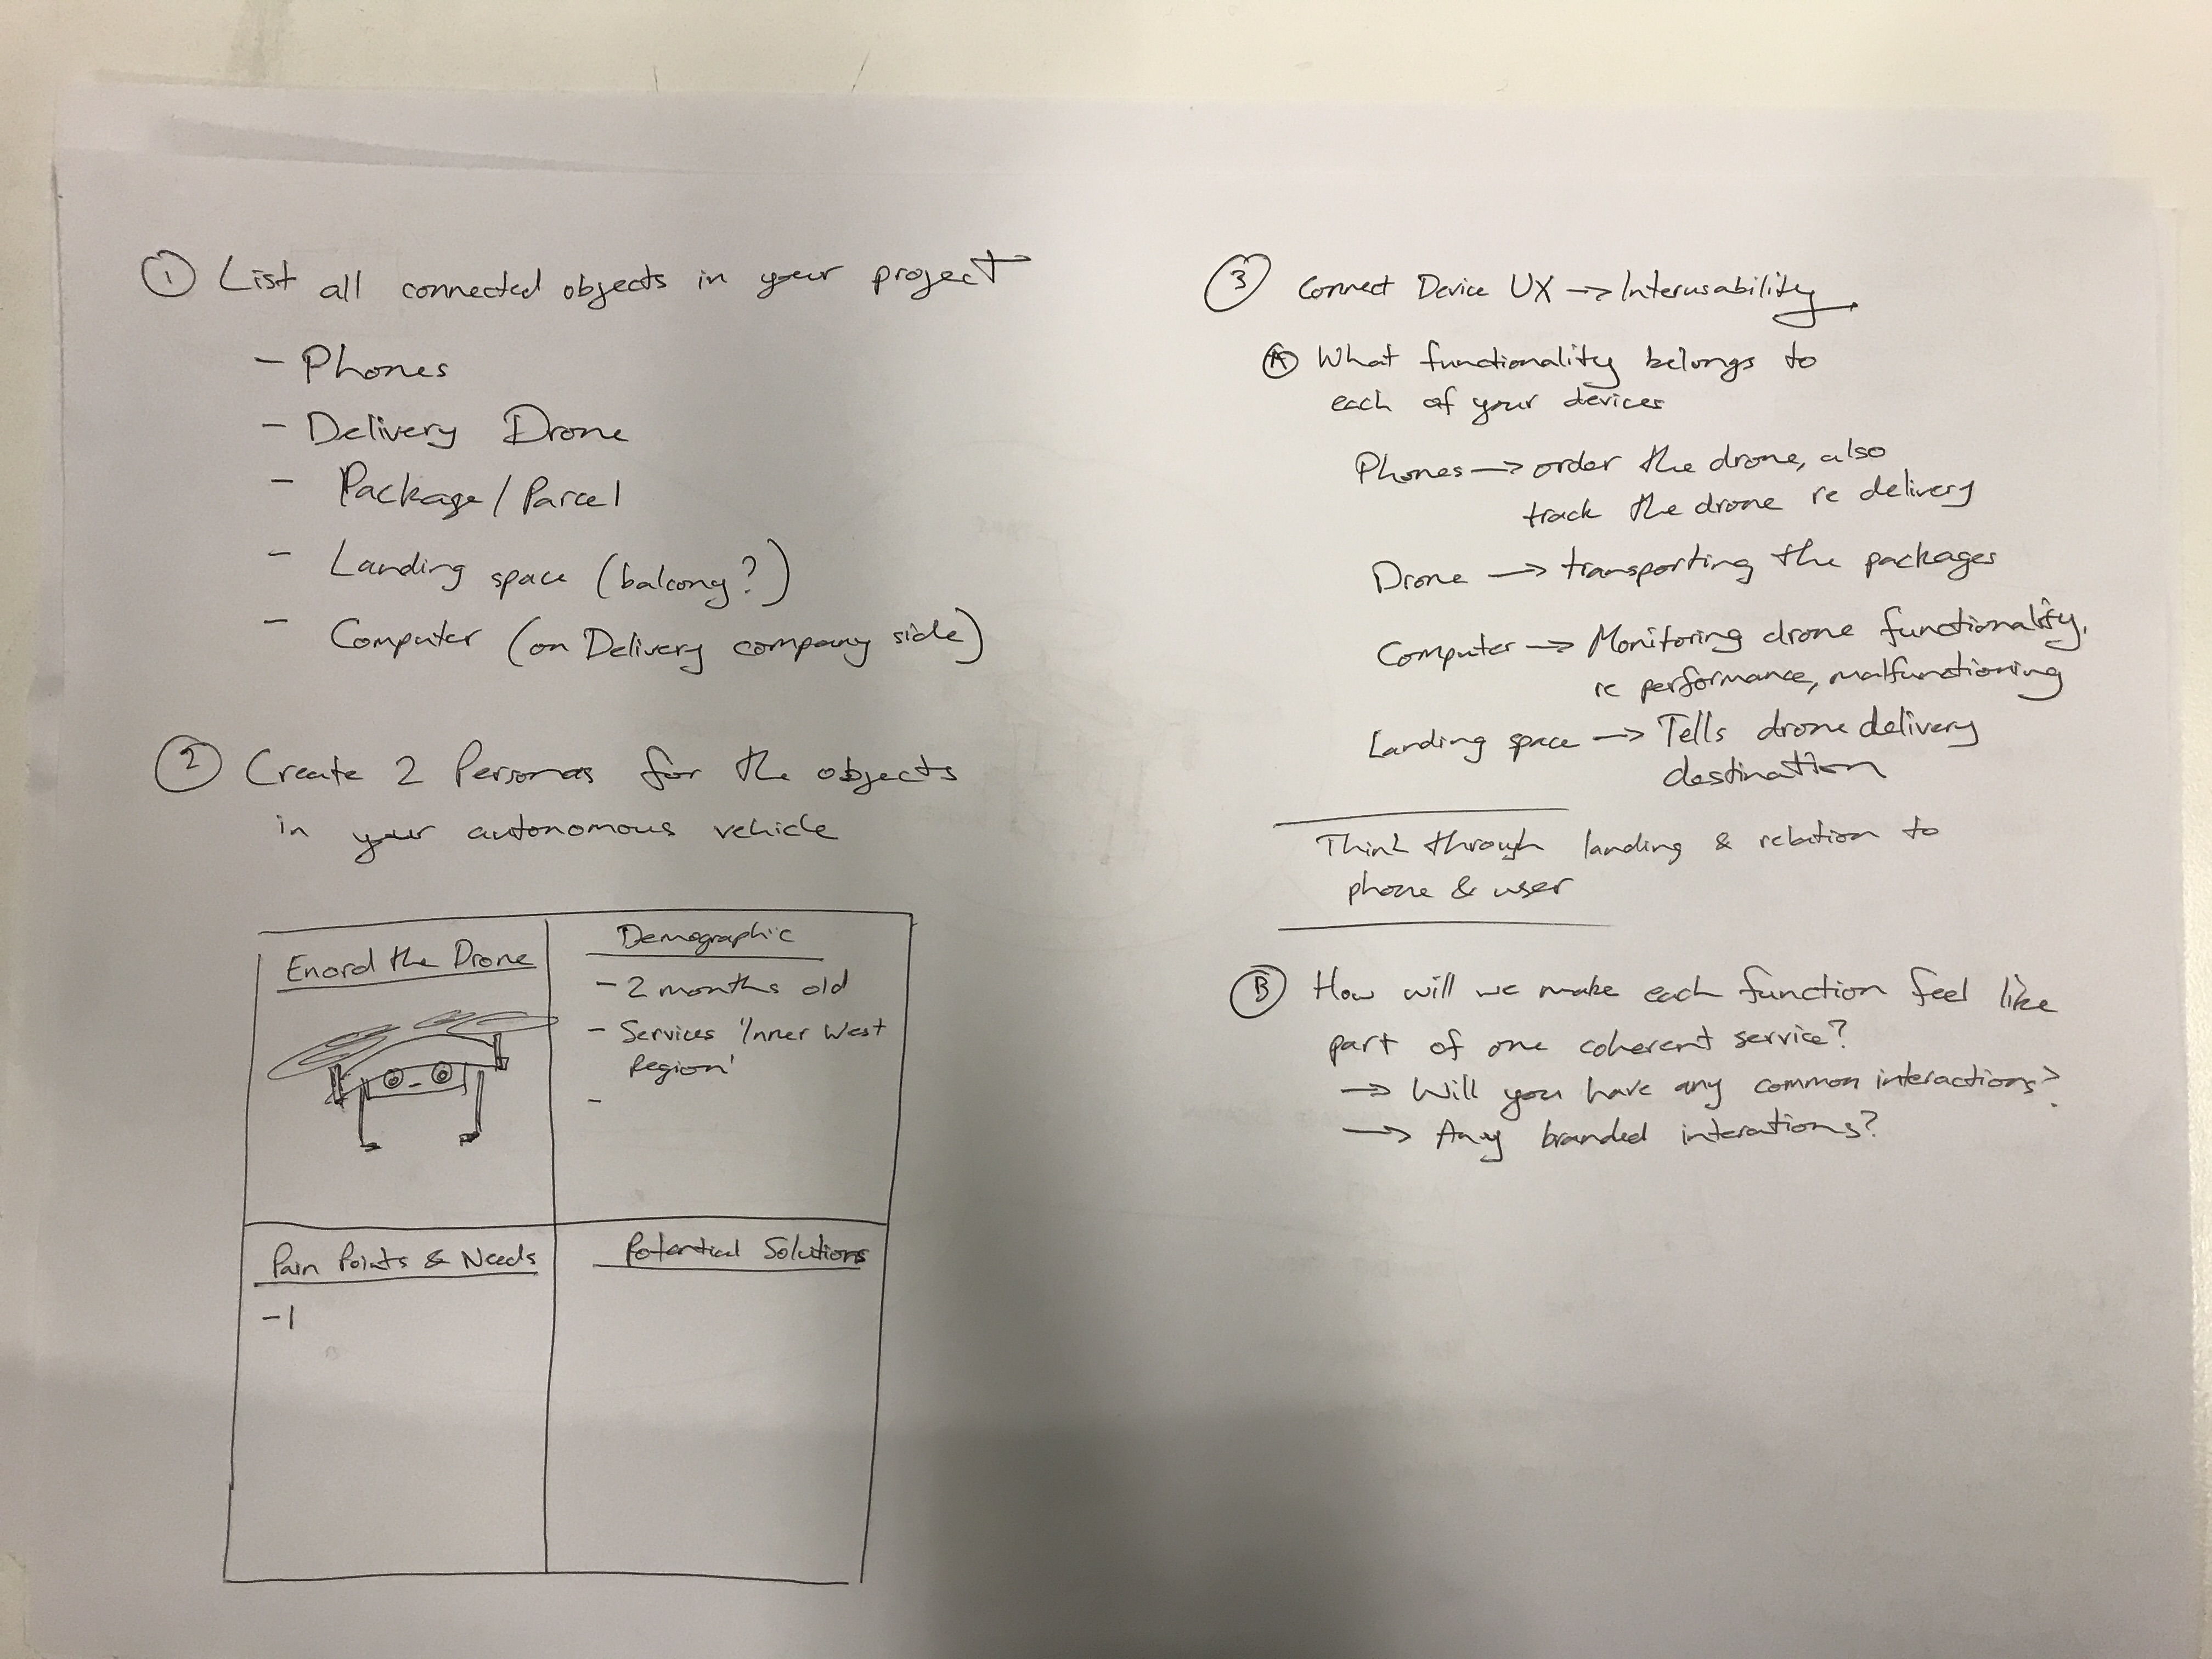 ① List all connected objects in your project
- Phones
- Delivery Drone
- Package/Parcel
- Landing space (balcony?)
- Computer (on Delivery company side)
② Create 2 Personas for the objects
in your autonomous vehicle
Enord the Drone
Demographic
- 2 months old
- Services 'Inner West
Region'
-
Pain Points & Needs
- 1
Potential Solutions
③ Connect Device UX → Interusability
Ⓐ What functionality belongs to
each of your devices
Phones → order the drone, also
track the drone re delivery
Drone → transporting the packages
Computer → Monitoring drone functionality,
re performance, malfunctioning
Landing space → Tells drone delivery
destination
Think through landing & relation to
phone & user
Ⓑ How will we make each function feel like
part of one coherent service?
→ Will you have any common interactions?
→ Any branded interations?